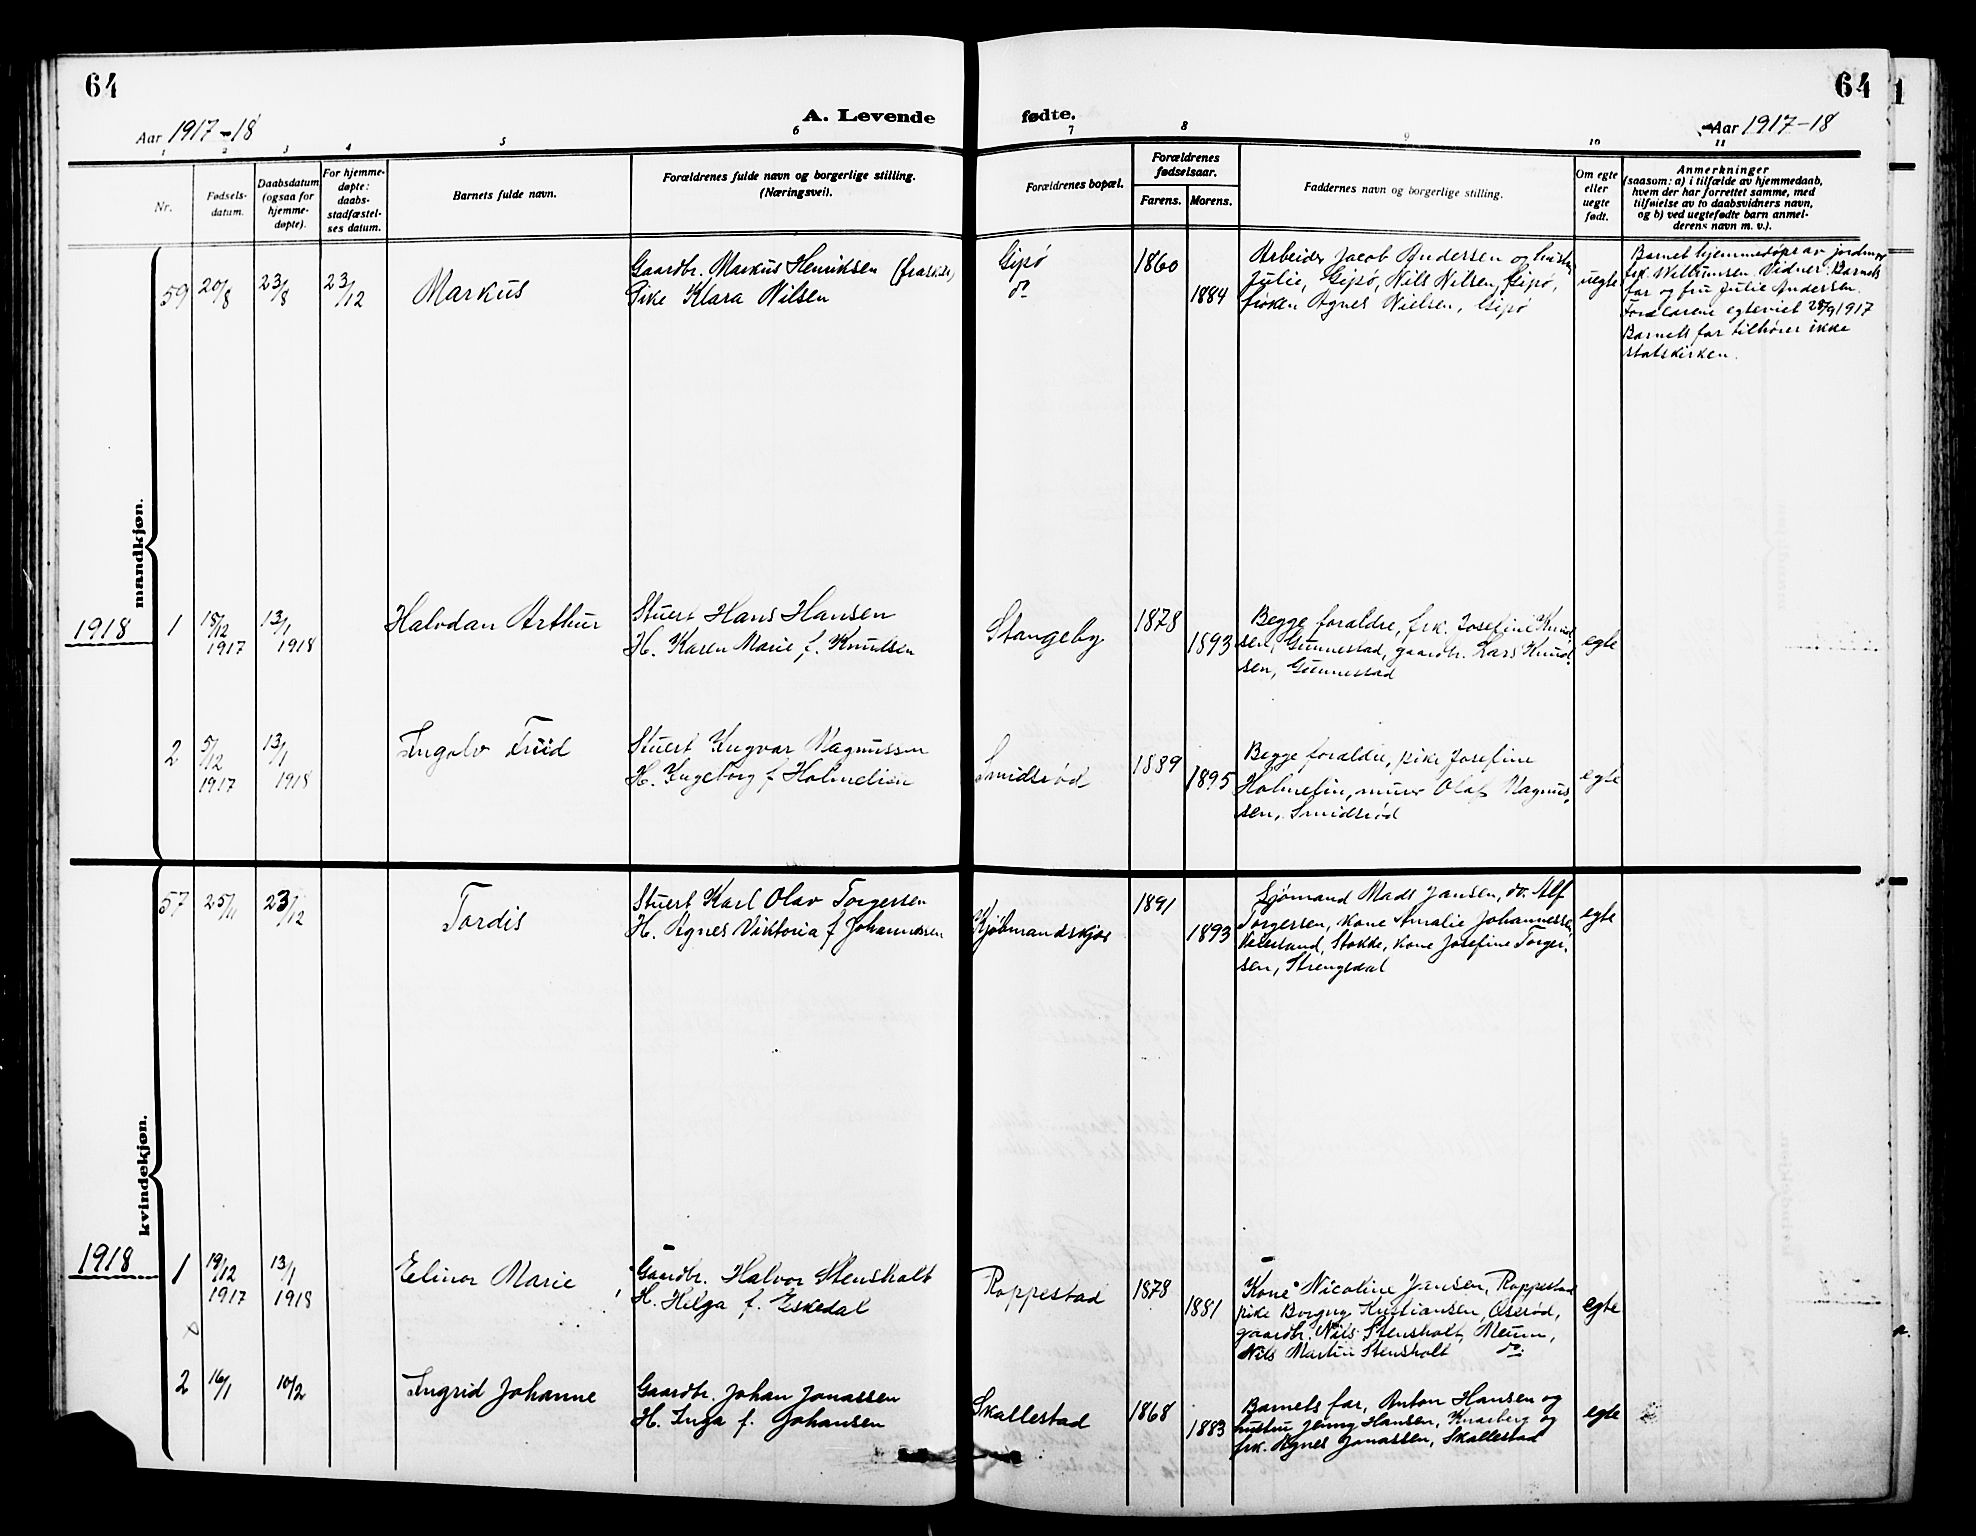 64
64
Aar 1917-18
A. Levende fødte.
Aar 1917-18
1 2 3 4 5 6 7 8 9 10 11
Nr.
Fødsels-
datum.
Daabsdatum
(ogsaa for
hjemme-
døpte).
For hjemme-
døpte:
daabs-
stadfæstel-
ses datum.
Barnets fulde navn.
Forældrenes fulde navn og borgerlige stilling.
(Næringsvei).
Forældrenes bopæl.
Forældrenes
fødselsaar.
Farens. Morens.
Faddernes navn og borgerlige stilling.
Om egte
eller
uegte
født.
Anmerkninger
(saasom: a) i tilfælde av hjemmedaab,
hvem der har forrettet samme, med
tilføielse av to daabsvidners navn,
og b) ved uegtefødte barn anmel-
derens navn m. v.).
mandkjøn.
59
20/8
23/8
23/12
Markus
Gaardbr. Markus Henriksen (fraskilt)
Pike Klara Nilsen
Gipø
do
1860
1884
Arbeider Jacob Andersen og hustru
Julie, Gipø, Nils Nilsen, Gipø,
frøken Agnes Nielsen, Gipø
uegte
Barnet hjemmedøpt av jordmor
frk. Vidner: Barnets
far og fru Julie Andersen.
Forældrene egteviet 28/9 1917
Barnets far tilhører ikke
statskirken.
1918
1
18/12
1917
13/1
1918
Halvdan Arthur
Stuert Hans Hansen
H. Karen Marie f. Knudsen
Stangeby
1878
1893
Begge forældre, frk. Josefine Knud-
sen, Gunnestad, gaardbr. Lars Knud-
sen, Gunnestad
egte
2
5/12
1917
13/1
1918
Ingolv
Stuert Ingvar Magnussen
H. Ingeborg f. Holmelien
Smidsrød
1889
1895
Begge forældre, pike Josefine
Holmelin, murer Olaf Magnus-
sen, Smidsrød
egte
kvindekjøn.
57
25/11
23/12
Tordis
Stuert Karl Olav Torgersen
H. Agnes Viktoria f Johannessen
Kjøbmandskjær
1891
1893
Sjømand Mads Jansen, do. Alf
Torgersen, kone Amalie Johannessen,
Veierland, Stokke, kone Josefine Torger-
sen, Strengsdal
egte
1918
1
19/12
1917
13/1
1918
Elinor Marie
Gaardbr. Halvor Stensholt
H. Helga f. Eskedal
Roppestad
1878
1881
Kone Nicoline Jansen, Roppestad
pike Borgny Kristiansen, Oserød,
gaardbr. Nils Stensholt, Meum,
Nils Martin Stensholt do:
egte
2
16/1
10/2
Ingrid Johanne
Gaardbr. Johan Jonassen
H. Inga f. Johansen
Skallestad
1868
1883
Barnets far, Anton Hansen og
hustru Jenny Hansen, Knarberg og
frk. Agnes Jonassen, Skallestad
egte